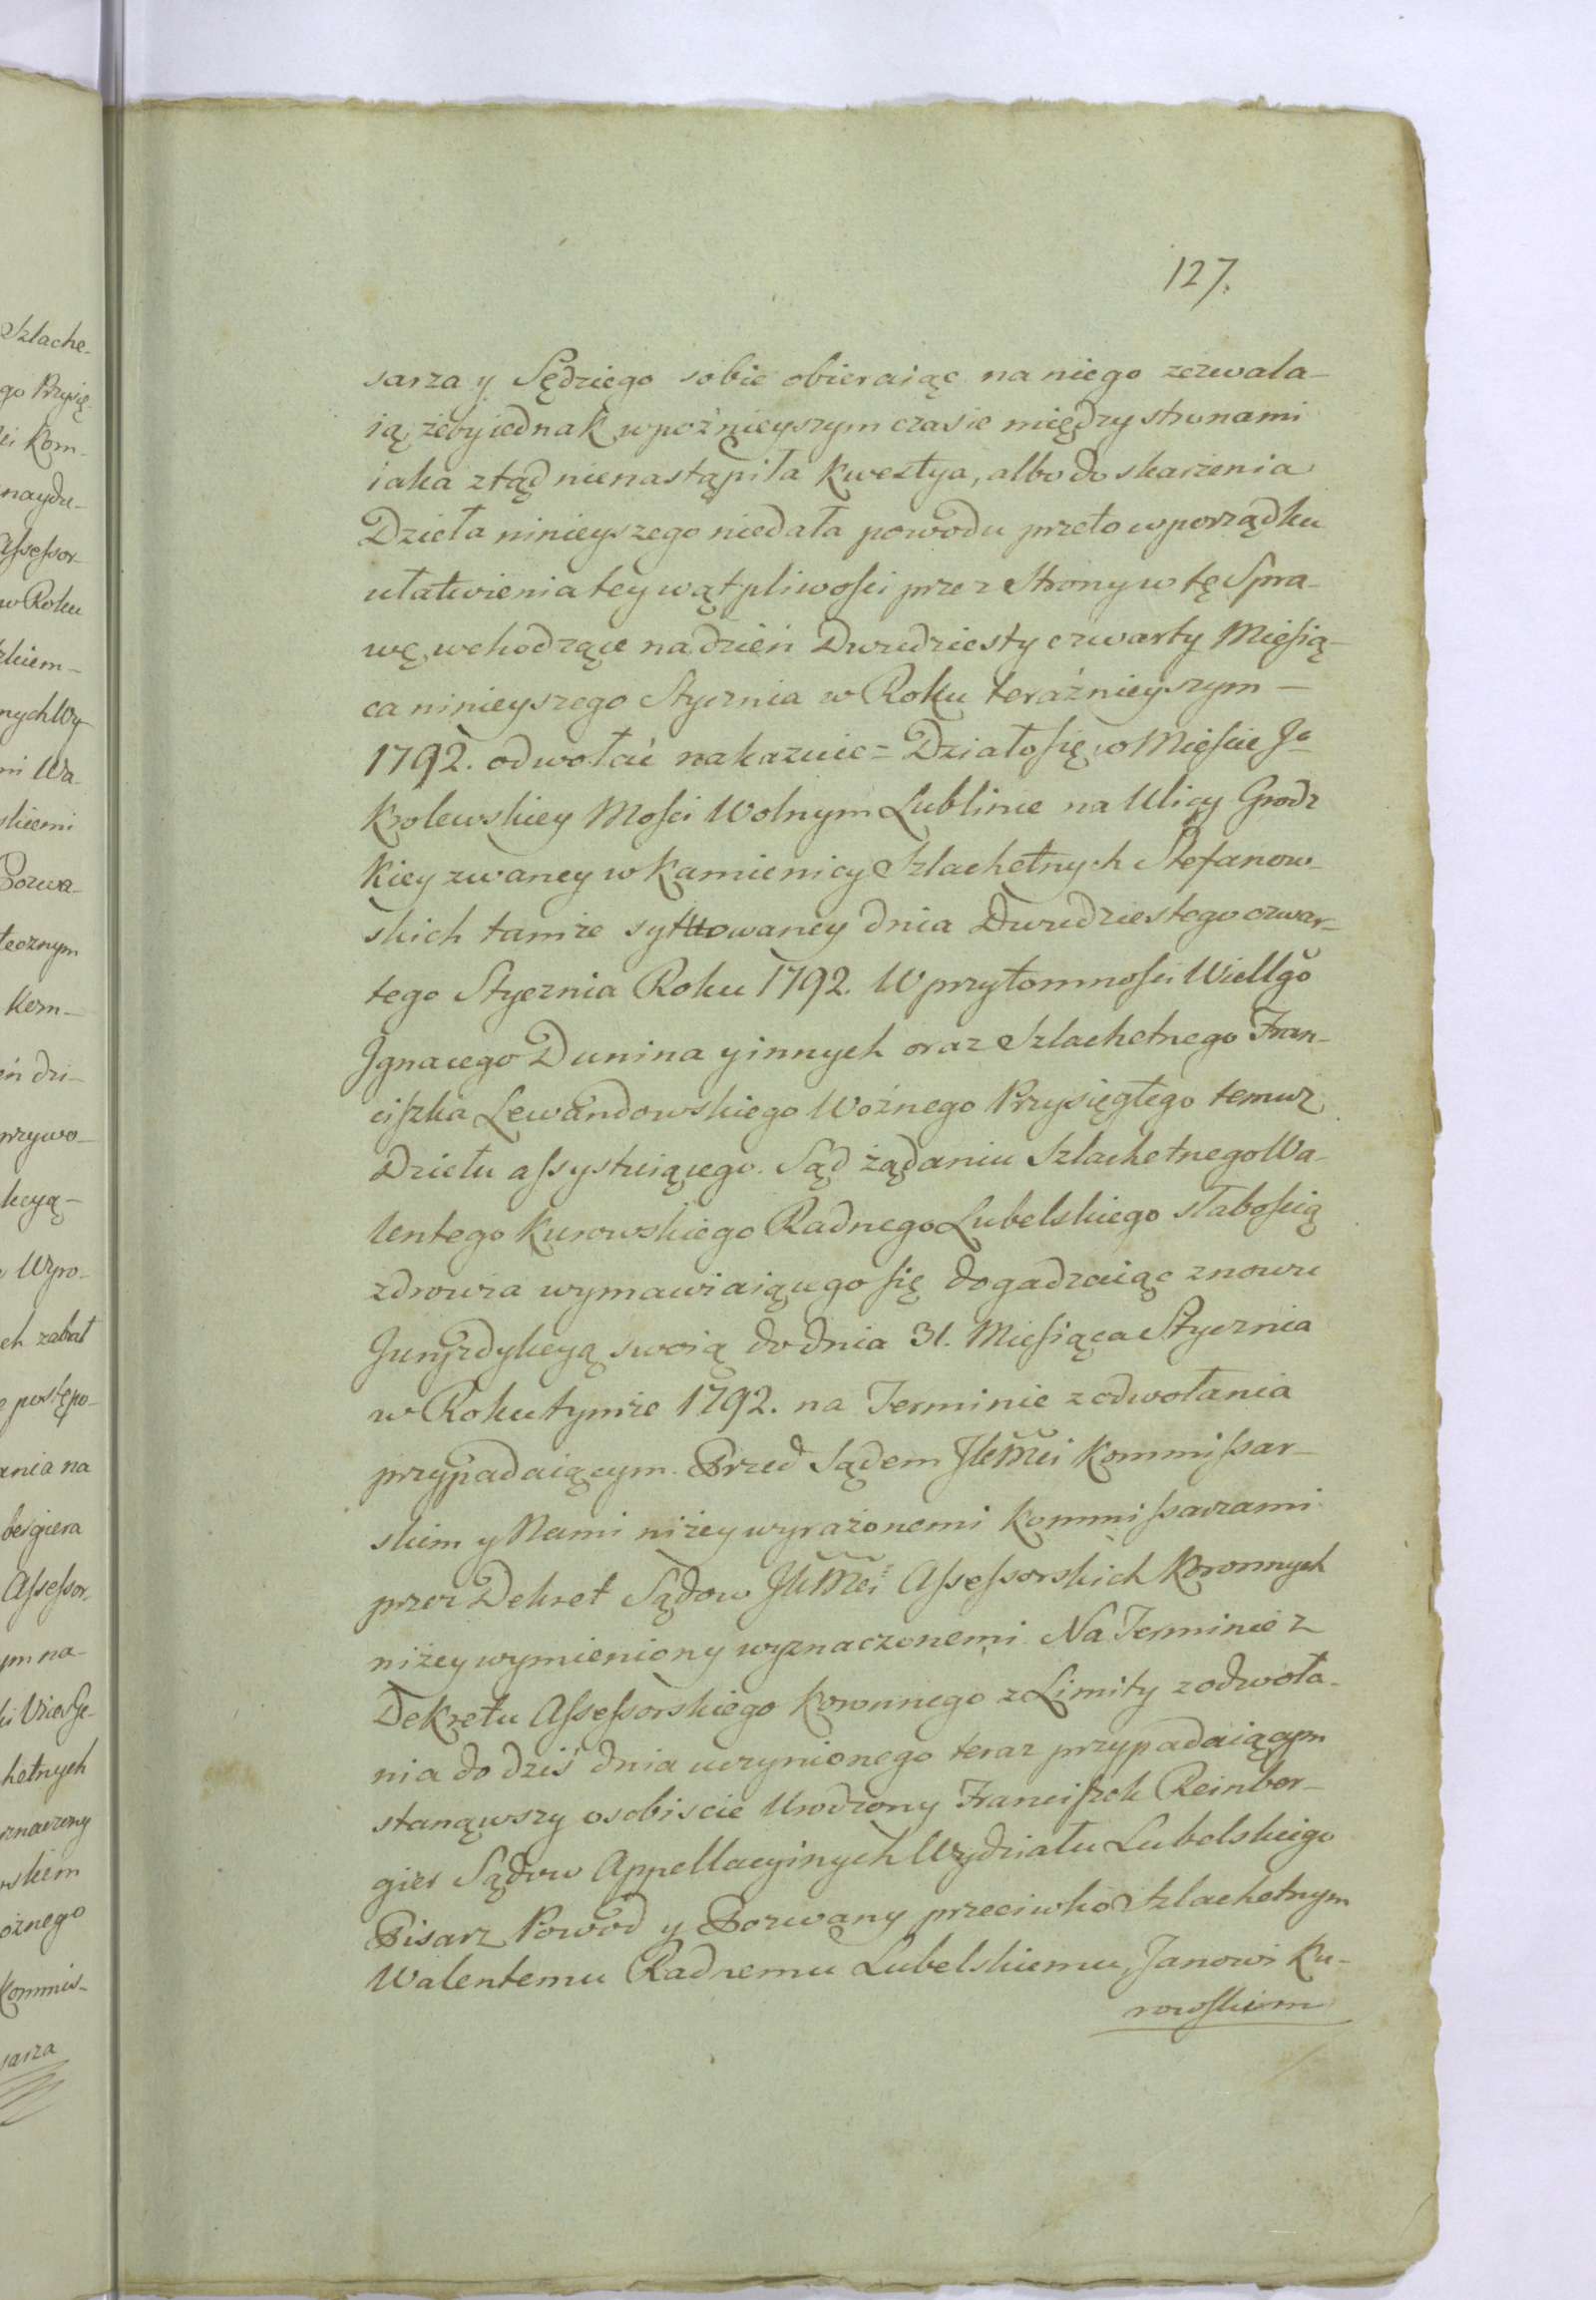 127.
sarza y Sędziego sobie obieraiąc na niego zezwala-
ią, żeby jednak w poźnieyszym czasie między stronami
iaka ztąd nienastąpiła kwestya, albo do skarżenia
Dzieła ninieyszego niedała powodu przeto w porządku
ułatwienia tey wątpliwości przez Strony w tę Spra-
wę wchodzące na dzień Dwudziesty czwarty Miesią-
ca ninieyszego Stycznia w Roku teraźnieyszym —
1792. odwołać nakazuie = Działo się w Mieście Jo
Krolewskiey Mości Wolnym Lublinie na Ulicy Grodz
kiey zwaney w Kamienicy Szlachetnych Stefanow-
skich tamże sytuowaney dnia Dwudziestego czwar-
tego Stycznia Roku 1792. W przytomności Wiellgo
Ignacego Dunina y innych oraz Szlachetnego Fran-
ciszka Lewandowskiego Woźnego Przysięgłego temuz
Dziełu assystuiącego. Sąd żądaniu Szlachetnego Wa-
lentego Kurowskiego Radnego Lubelskiego słabością
zdrowia wymawiaiącego się dogadzaiąc znowu
Juryzdykcyą swoią do dnia 31. Miesiąca Stycznia
w Roku tymże 1792. na Terminie z odwołania
przypadaiącym. Przed Sądem JKMci Kommissar-
skim y Nami niżey wyrażonemi Kommissarzami
przez Dekret Sądow JKMci Assessorskich Koronnych
niżey wymieniony wyznaczonemi. Na Terminie z
Dekretu Assessorskiego Koronnego z Limity z odwoła-
nia do dziś dnia uczynionego teraz przypadaiącym
stanąwszy osobiscie Urodzony Franciszek Reinber-
gier Sądow Appellacyinych Wydziału Lubelskiego
Pisarz Powod y Pozwany przeciwko Szlachetnym
Walentemu Radnemu Lubelskiemu, Janowi Ku-
rowskim
Szlache-
go Przysię-
ei Kom-
naydu-
Assessor-
w Roku
skiem-
nych Wy
mi Wa-
skiemi
Pozwa-
tecznym
Kom-
eń dzi-
przywo-
kcyą-
Wyro-
ch zabat
postępo-
ania na
bergiera
Assessor-
ym na-
hetnych
znaczony
rskiem
oźnego
Kommis-
sarza